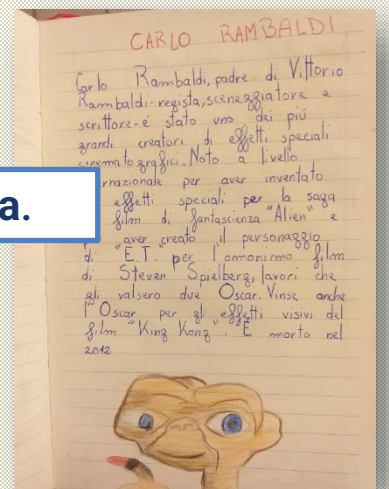 CARLO RAMBALDI
Carlo Rambaldi, padre di Vittorio
Rambaldi-regista, sceneggiatore e
scrittore-é stato uno dei piú
grandi creatori di effetti speciali
cinematografici. Noto a livello
per aver inventato
effetti speciali per la saga
film di fantascienza "Alien" e
aver creato il personaggio
di "E.T. per l'omonimo film
di Steven Spielberg, lavori che
gli valsero due Oscar. Vinse anche
l'Oscar per gli effetti visivi del
film "King Kong". É morto nel
2012
a.